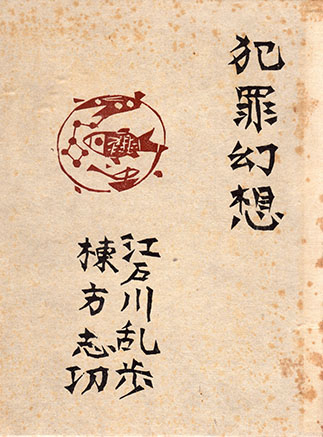 犯罪幻想
江戸川乱歩
棟方志功